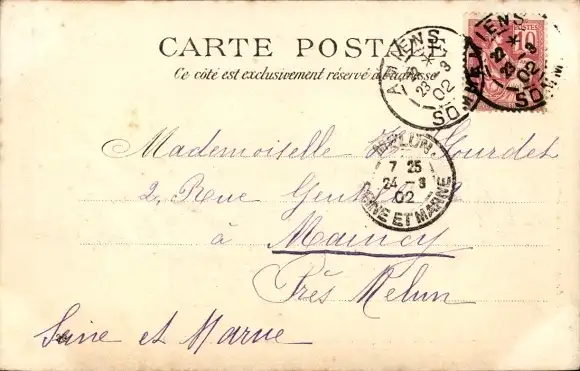 CARTE POSTALE
Ce côté est exclusivement réservé à l'adresse
AMIENS
22 *
23 - 3
02
SOMME
AMIENS
22 *
23 - 3
02
SOMME
POSTES
10
MELUN
7 25
24 - 3
02
SEINE ET MARNE
Mademoiselle Gourdet
2, Rue
à Maincy
Près Melun
Seine et Marne